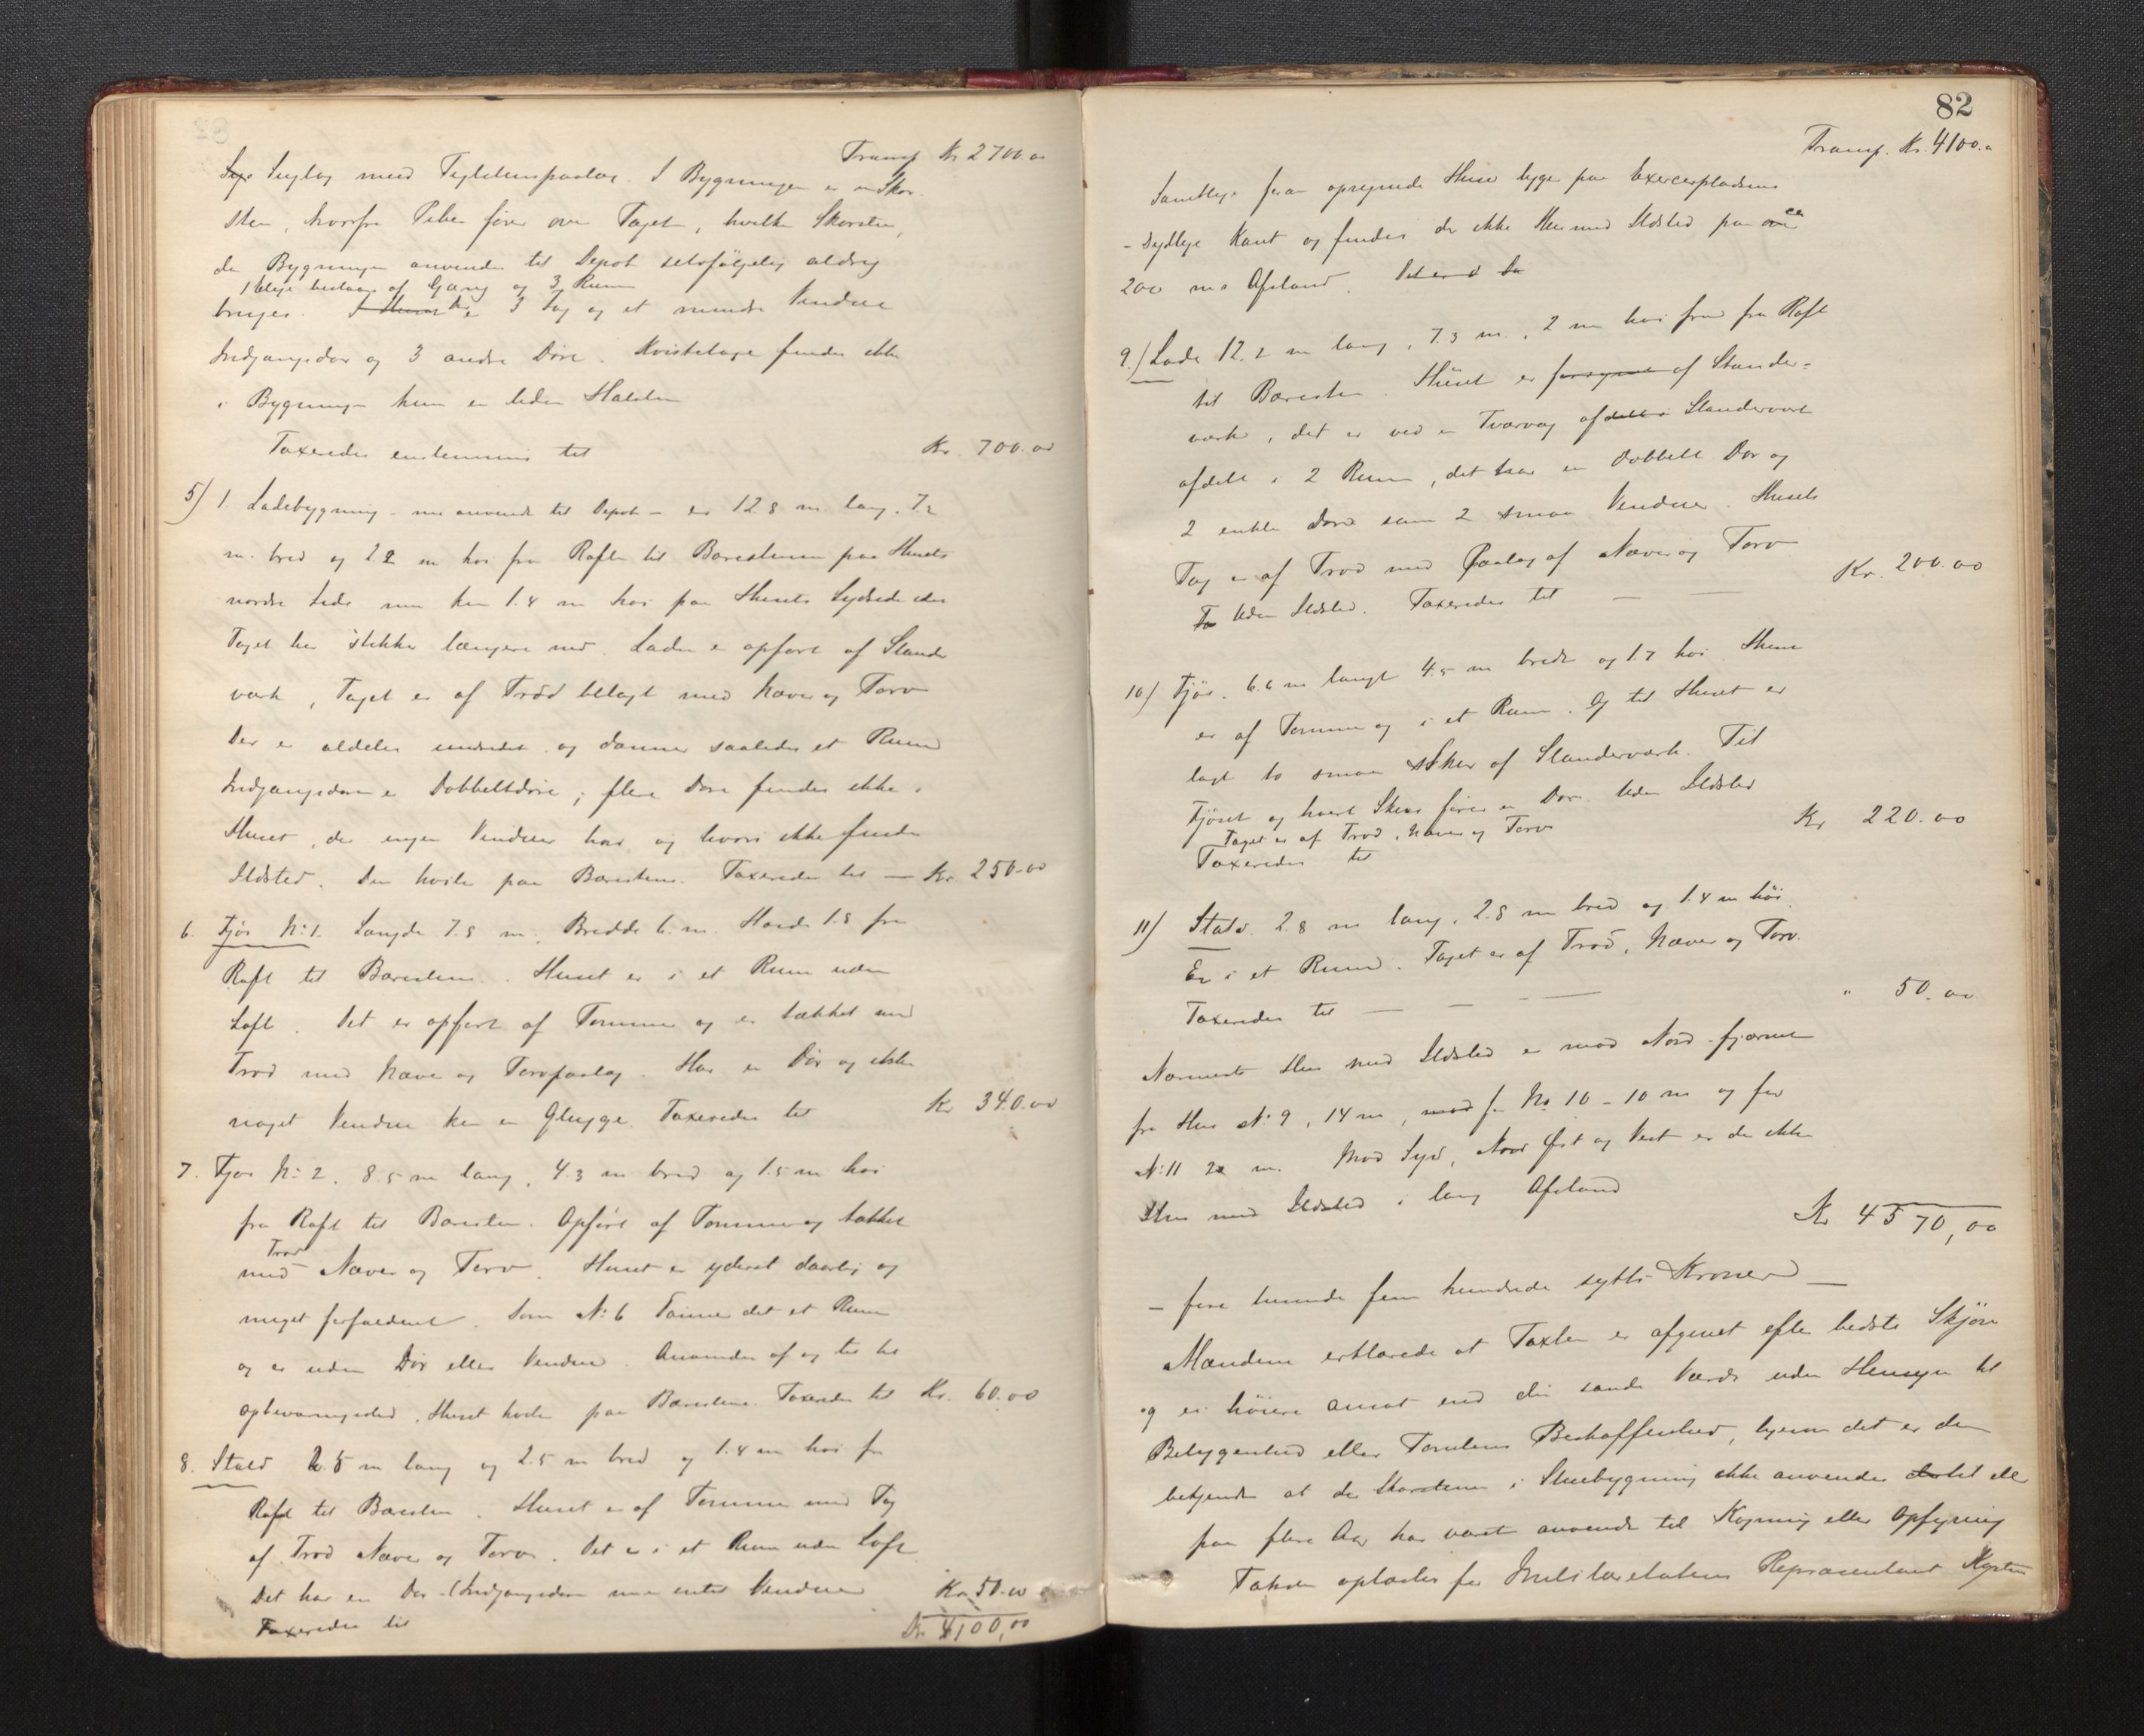 Transp. Kr 2700.00
Suglag med Teglstenspaalæg. I Bygningen er en Skor
sten, hvorfra Piben fører over Taget, hvilken Skorsten,
da Bygningen anvendes til Depot selvfølgelig aldrig
1 Etage bestaar af Gang og 3 Rum
bruges. Der er 3 Fag og et mindre Vindue
Indgangsdør og 3 andre Døre. Kvistetage findes ikke
i Bygningen kun en liden
Taxeredes enstemmig til Kr. 700.00
5) 1 Ladebygning - nu anvendt til Depot - er 12.8 m lang, 7.2
m. bred og 2.2 m høi fra Raften til Bærestenene paa Husets
nordre Side men kun 1.4 m høi paa Husets Sydside idet
Taget her stikker længere ned. Laden er opført af Stander
værk, Taget er af Trod belagt med Næver og Torv
Den er aldeles uindredet og danner saaledes et Rum
Indgangsdøren er Dobbeltdøre; flere Døre findes ikke i
Huset, der ingen Vinduer har og hvori ikke findes
Ildsted. Den hviler paa Bærestene. Taxeredes til — Kr. 250.00
6. Fjøs No 1. Længde 7.8 m., Bredde 6. m. Høide 1.8 fra
Raft til Bærestene. Huset er i et Rum uden
Loft. Det er opført af Tømmer og er tækket med
Trod med Næver og Torvpaalæg. Har en Dør og ikke
noget Vindue kun en Glugge. Taxeredes til Kr 340.00
7. Fjøs No 2. 8.5 m lang, 4.3 m bred og 1.5 m høi
fra Raft til Bæresten. Opført af Tømmer og tækket
Trod
med Næver og Torv. Huset er yderst daarlig og
meget forfaldent. Som No 6 danner det et Rum
og er uden Dør eller Vindue. Anvendes af og til til
opbevaringssted. Huset hviler paa Bærestene. Taxeredes til Kr. 60.00
8. Stald 2.5 m lang og 2.5 m bred og 1.4 m høi fra
Raft til Bæresten. Huset er af Tømmer med Tag
af Trod Næver og Torv. Det er i et Rum uden Loft
Det har en Dør - (Indgangsdøren men intet Vindue
Taxeredes til Kr. 50.00
Kr 4100,00
82
Transp. Kr. 4100.00
Samtlige foran opregnede Huse ligger paa Exercerpladsens
- sydlige Kant og findes der ikke Hus med Ildsted paa ca
200 m's Afstand.
9.) Lade 12.2 m lang, 7.3 m., 2 m høi fra Raft
til Bæresten. Huset er forsynet af Stander-
værk, det er ved en Tværvæg af Standerværk
afdelt i 2 Rum, det har en dobbelt Dør og
2 enkle Døre samt 2 smaa Vinduer. Husets
Tag er af Trod med Paalæg af Næver og Torv
Uden Ildsted. Taxeredes til — — Kr. 200.00
10) Fjøs. 6.6 m langt 4.5 m bredt og 1.7 høi. Huset
er af Tømmer og i et Rum. Og til Huset er
lagt to smaa Skur af Standerværk. Til
Fjøset og hvert Skur fører en Dør. Uden Ildsted
Taget er af Trod, Næver og Torv Kr 220.00
Taxeredes til
11) Stald. 2.8 m lang, 2.8 m bred og 1.4 m høi.
Er i et Rum. Taget er af Trod, Næver og Torv.
Taxeredes til — — — " 50.00
Nærmeste Hus med Ildsted er mod Nord fjernet
fra Hus No 9, 14 m, fra No 10 - 10 m og fra
No 11 m. Mod Syd, Øst og Vest er der ikke
Hus med Ildsted i lang Afstand
Kr 4570,00
- fire tusinde fem hundrede sytti Kroner —
Mændene erklærede at Taxten er afgivet efter bedste Skjøn
og ei høiere ansat end den sande Værdi uden Hensyn til
Beliggenhed eller Tomtens Beskaffenhed, ligesom det er dem
bekjendt at de Skorstene i Stuebygning ikke anvendes eller
paa flere Aar har været anvendt til Kogning eller Opfyring
Taksten oplæstes for Militæretatens Repræsentant Kaptein